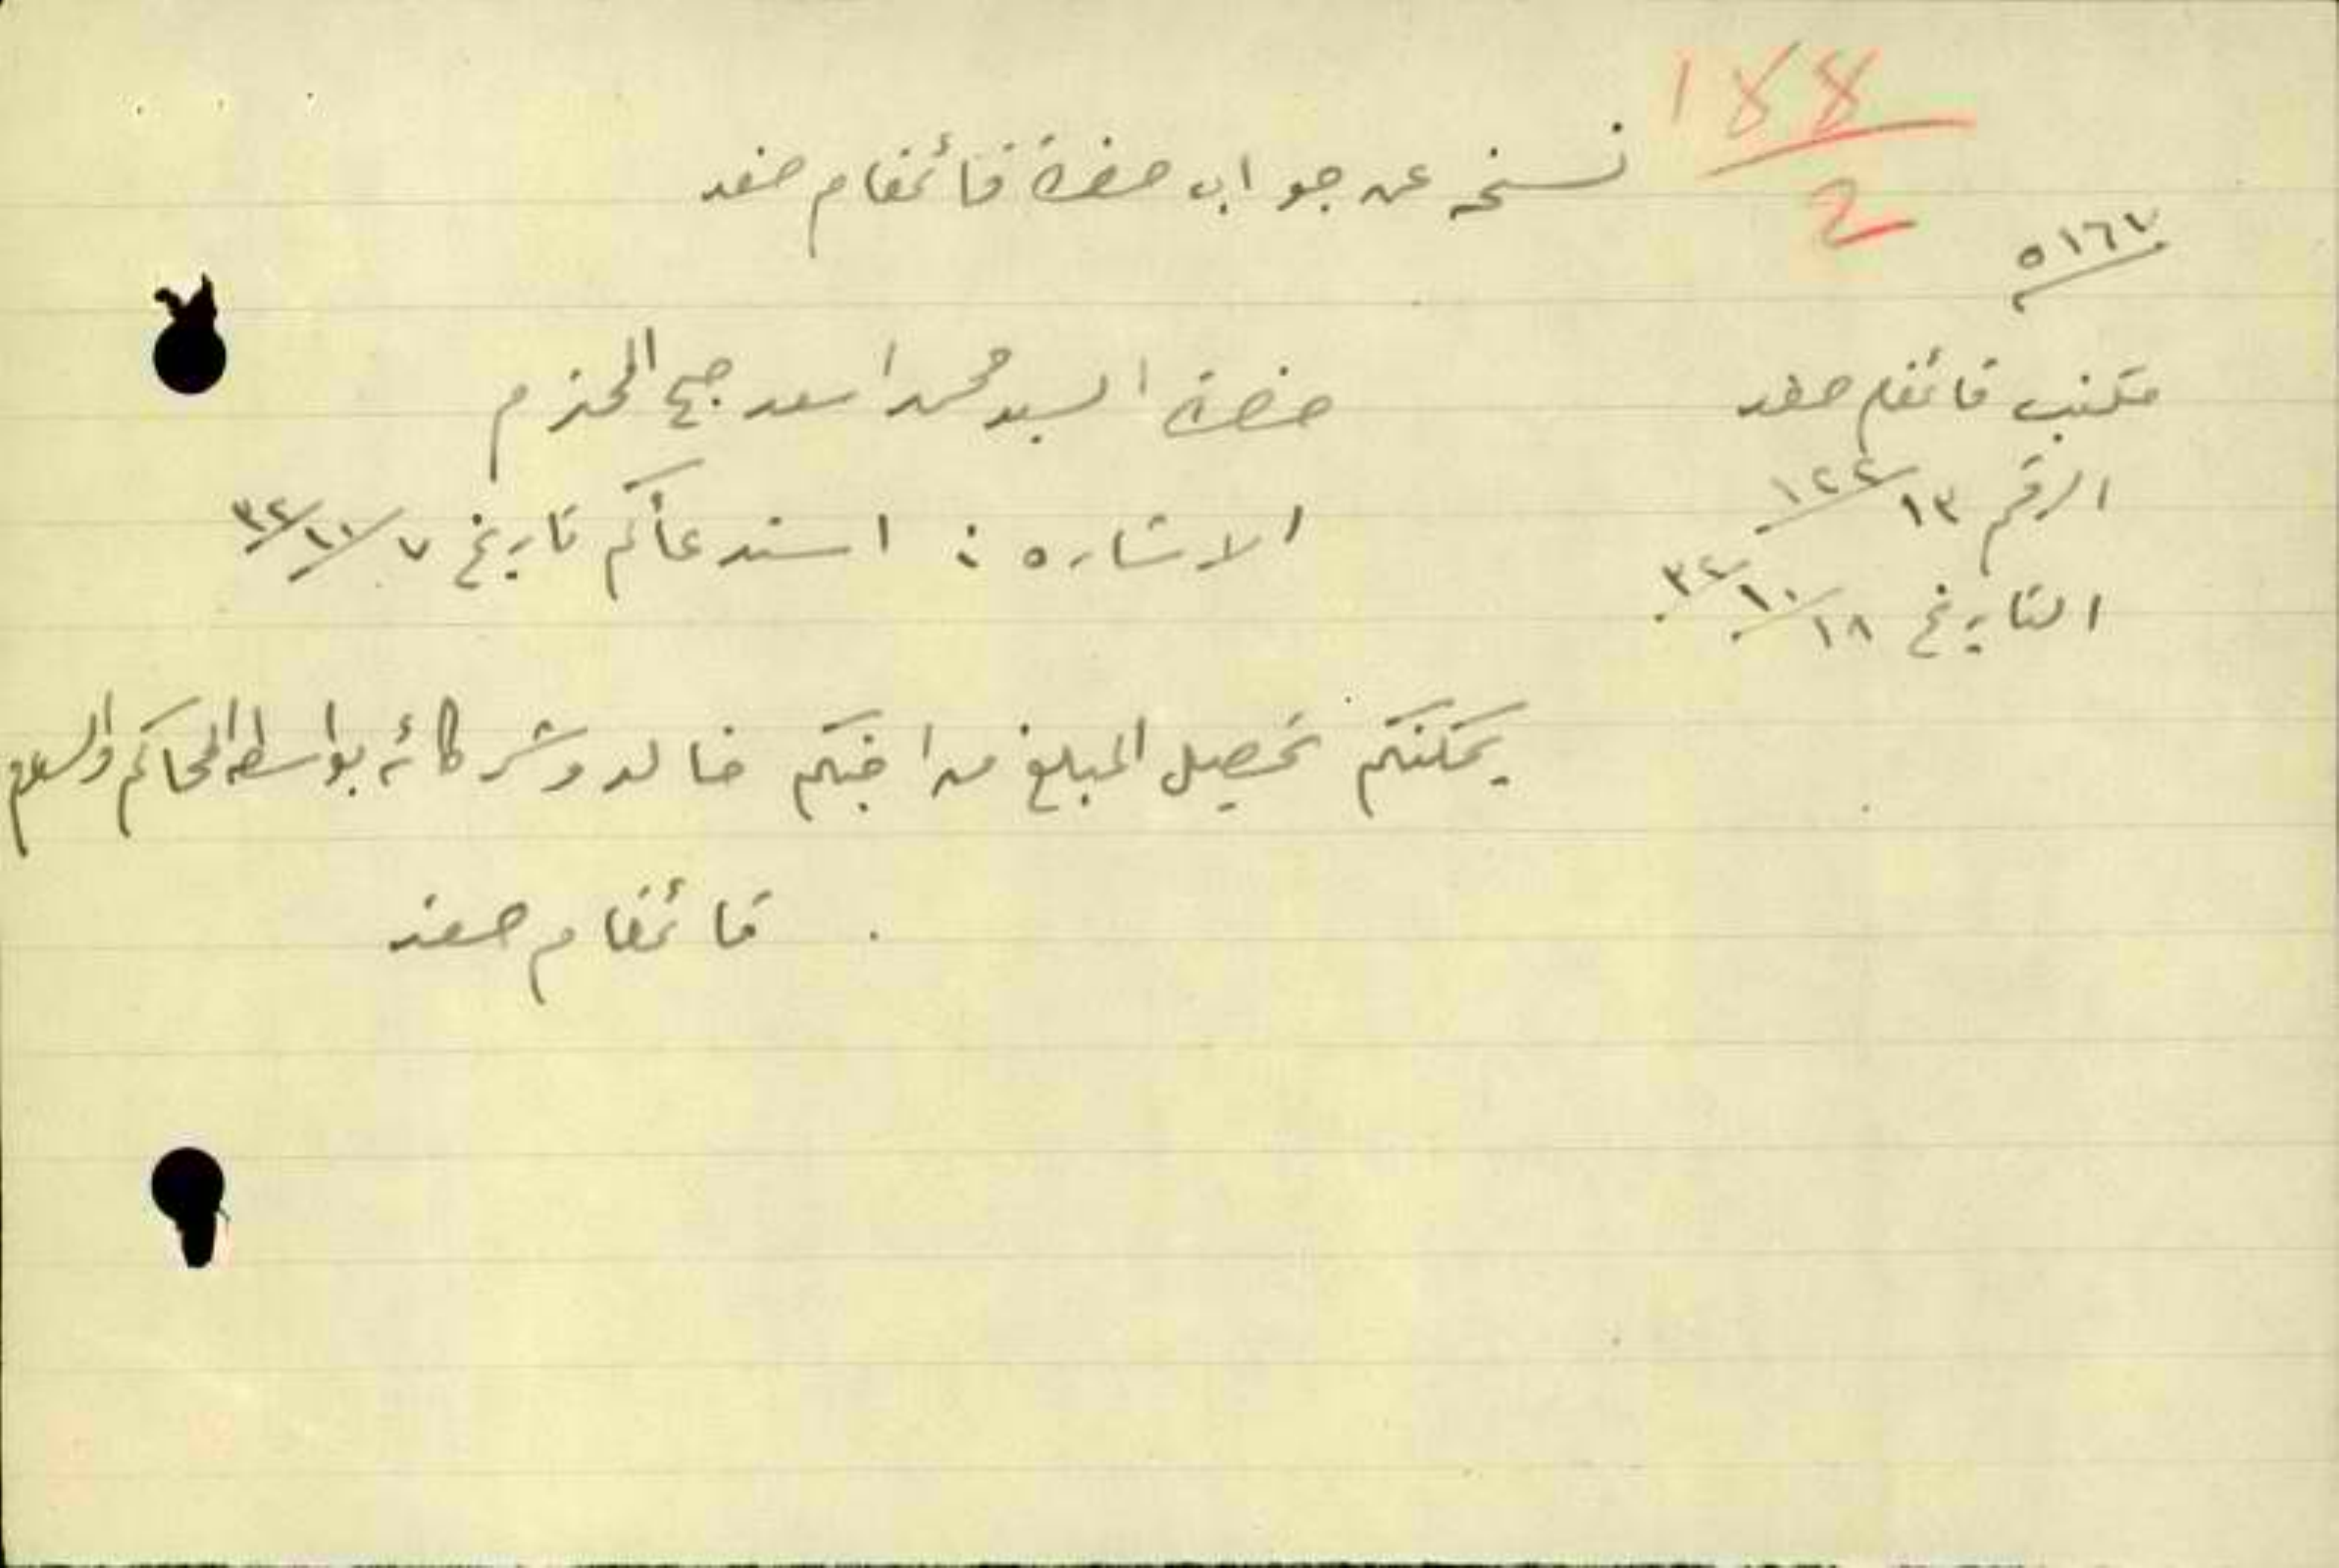 188
2
نسخه عن جواب حضرة قائمقام صفد
٥١٦٧
مكتب قائمقام صفد
الرقم ١٣/١٢٢
التاريخ ١٨/١٠/٣٢
حضرة السيد محمد اسعد صبح المحترم
الاشاره : استدعأكم تاريخ ٧/١٠/٣٢
يمكنكم تحصيل المبلغ من اخيكم خالد وشركائه بواسطة المحاكم والسلام
قائمقام صفد